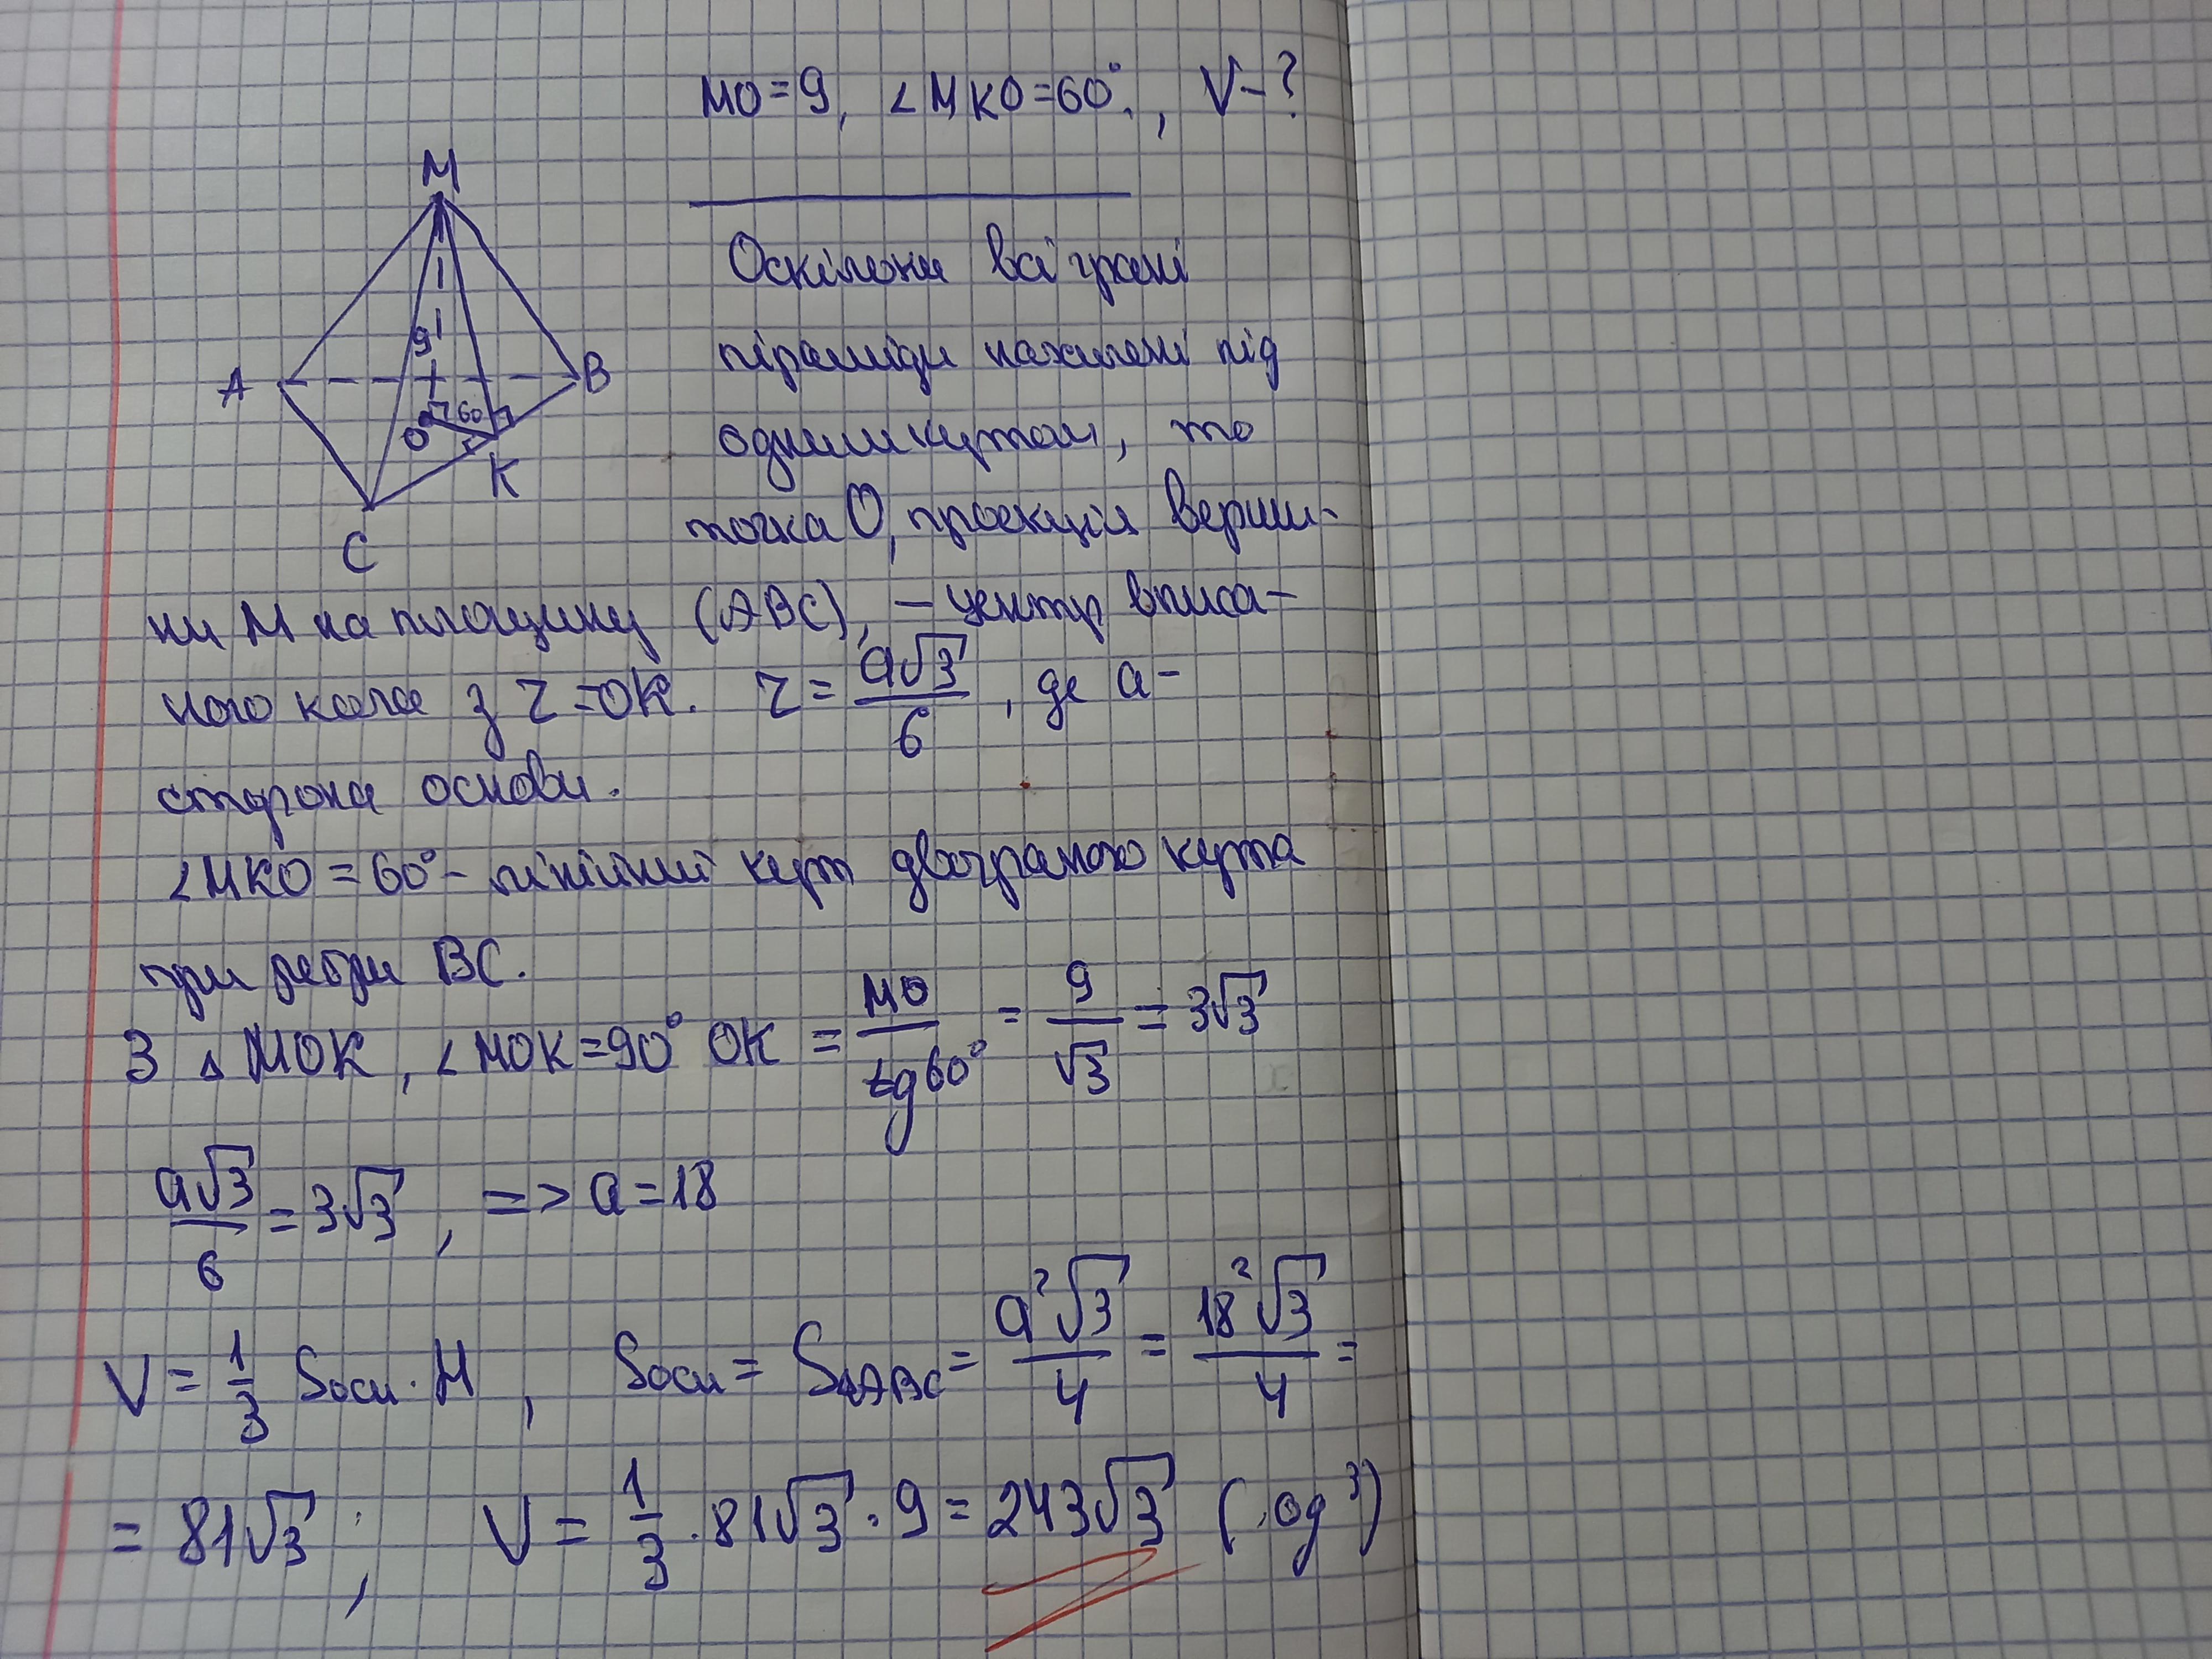 MO=9, ∠MKO=60°., V-?
M
9
A
B
60
O
K
C
Оскільки всі грані
піраміди нахилені під
одним кутом, то
точка О, проекція верши-
ни М на площину (ABC), – центр вписа-
ного кола з r=OK. r = a√3/6, де a-
сторона основи.
∠MKO=60°- лінійний кут двогранного кута
при ребрі BC.
З △MOK, ∠MOK=90° OK = MO/tg60° = 9/√3 = 3√3
a√3/6 = 3√3, => a=18
V = 1/3 Sосн·H, Sосн = S△ABC = a²√3/4 = 18²√3/4 =
= 81√3; V = 1/3·81√3·9 = 243√3 (од³)